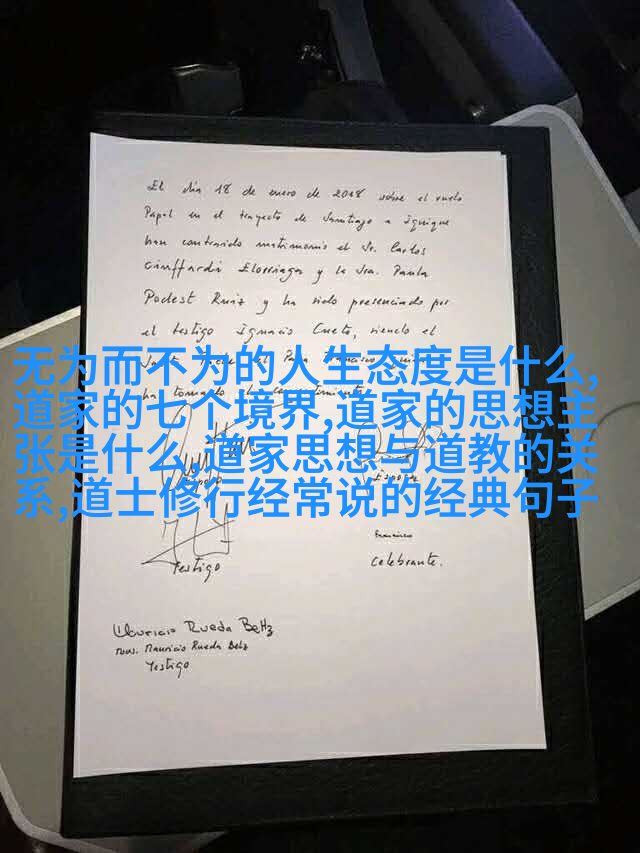 El día 18 de enero de 2018 sobre el vuelo
Papal en el trayecto de Santiago a Iquique
han contraido matrimonio el Sr. Carlos
Ciuffardi Elorriaga y la Sra. Paula
Podest Ruiz y ha sido presenciado por
el testigo Ignacio Cueto, siendo el
Papa Francisco
ha tomado el consentimiento
无为而不为的人生态度是什么,
道家的七个境界,道家的思想主
张是什么,道家思想与道教的关
系,道士修行经常说的经典句子
Esposa
Testigo
Francisco
Celebrante.
Mauricio Rueda Beltz
Mons. Mauricio Rueda Beltz
Testigo